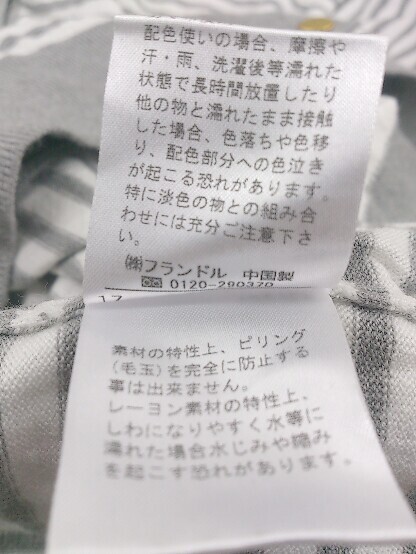 配色使いの場合、摩擦や
汗・雨、洗濯後等濡れた
状態で長時間放置したり
他の物と濡れたまま接触
した場合、色落ちや色移
り、配色部分への色泣き
が起こる恐れがあります。
特に淡色の物との組み合
わせには充分ご注意下さ
い。
㈱フランドル 中国製
0120-290370
17
素材の特性上、ピリング
(毛玉)を完全に防止する
事は出来ません。
レーヨン素材の特性上、
しわになりやすく水等に
濡れた場合水じみや縮み
を起こす恐れがあります。